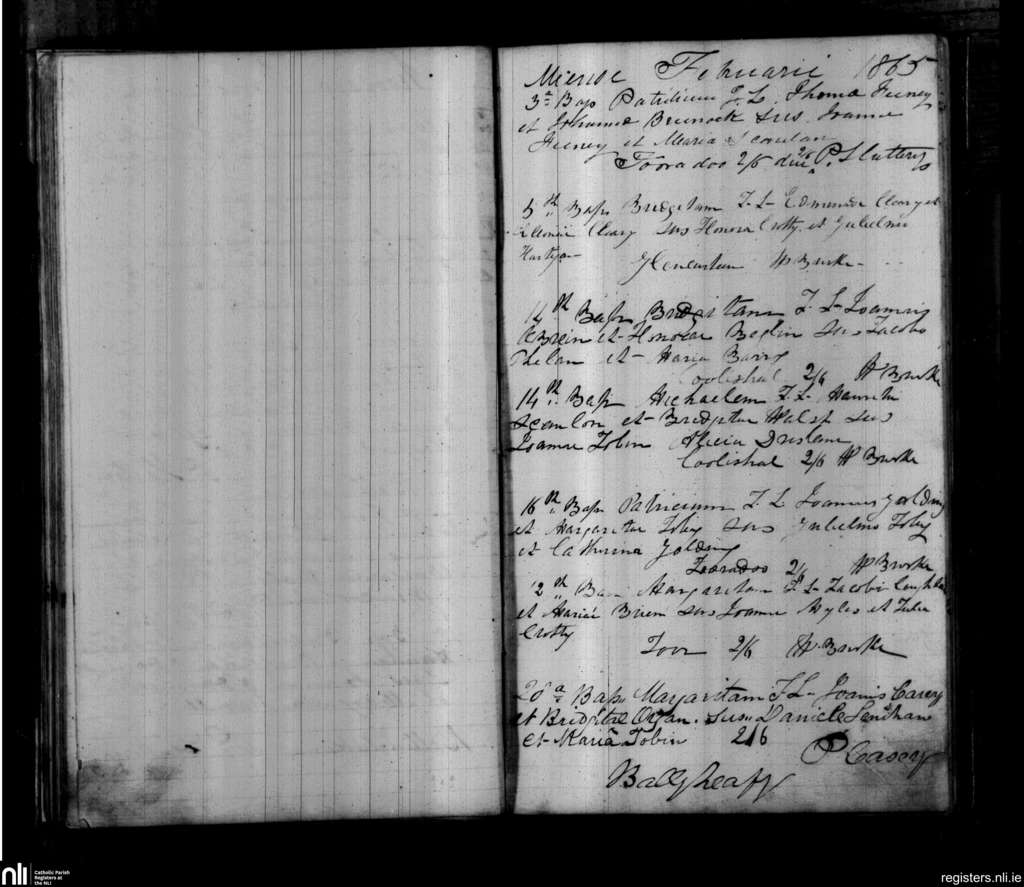 Mense Februarii 1865
3ª Bap Patritium F. L. Thoma Feeney
et Johanna Brunock sus. Joanne
Feeney et Maria Scanlan
Tooradoo 2/6 due 2/6 P. Slattery
5th Bap Bridgitam F. L. Edmundi Cleary et
Cleary sus Honora Crotty et Gulielmo
Hartigan
W Burke
14th Bap Bridgitam F. L. Joannis
OBrien et Honorae Beglin sus Jacobo
Phelan et Maria Barry
Coolishal 2/6 W Burke
14th Bap Michaelem F. L.
Scanlon et Bridgitae Walsh sus
Joanne Tobin Alicia Drislane
Coolishal 2/6 W Burke
16th Bap Patricium F. L. Joannis Golding
et Margaritae Foley sus Gulielmo Foley
et Catherina Golding
Tooradoo 2/6 W Burke
12th Bap Margaritam F. L. Jacobi
et Mariae Brien sus Joanne Myles et Julia
Crotty
Toor 2/6 W. Burke
20ª Bap. Margaritam F L Joanis Casey
et Bridgitae Organ. sus. Daniele Lenahan
et Mariâ Tobin 2/6
P Casey
Ballyheaffy
nli Catholic Parish
Registers at
the NLI
registers.nli.ie